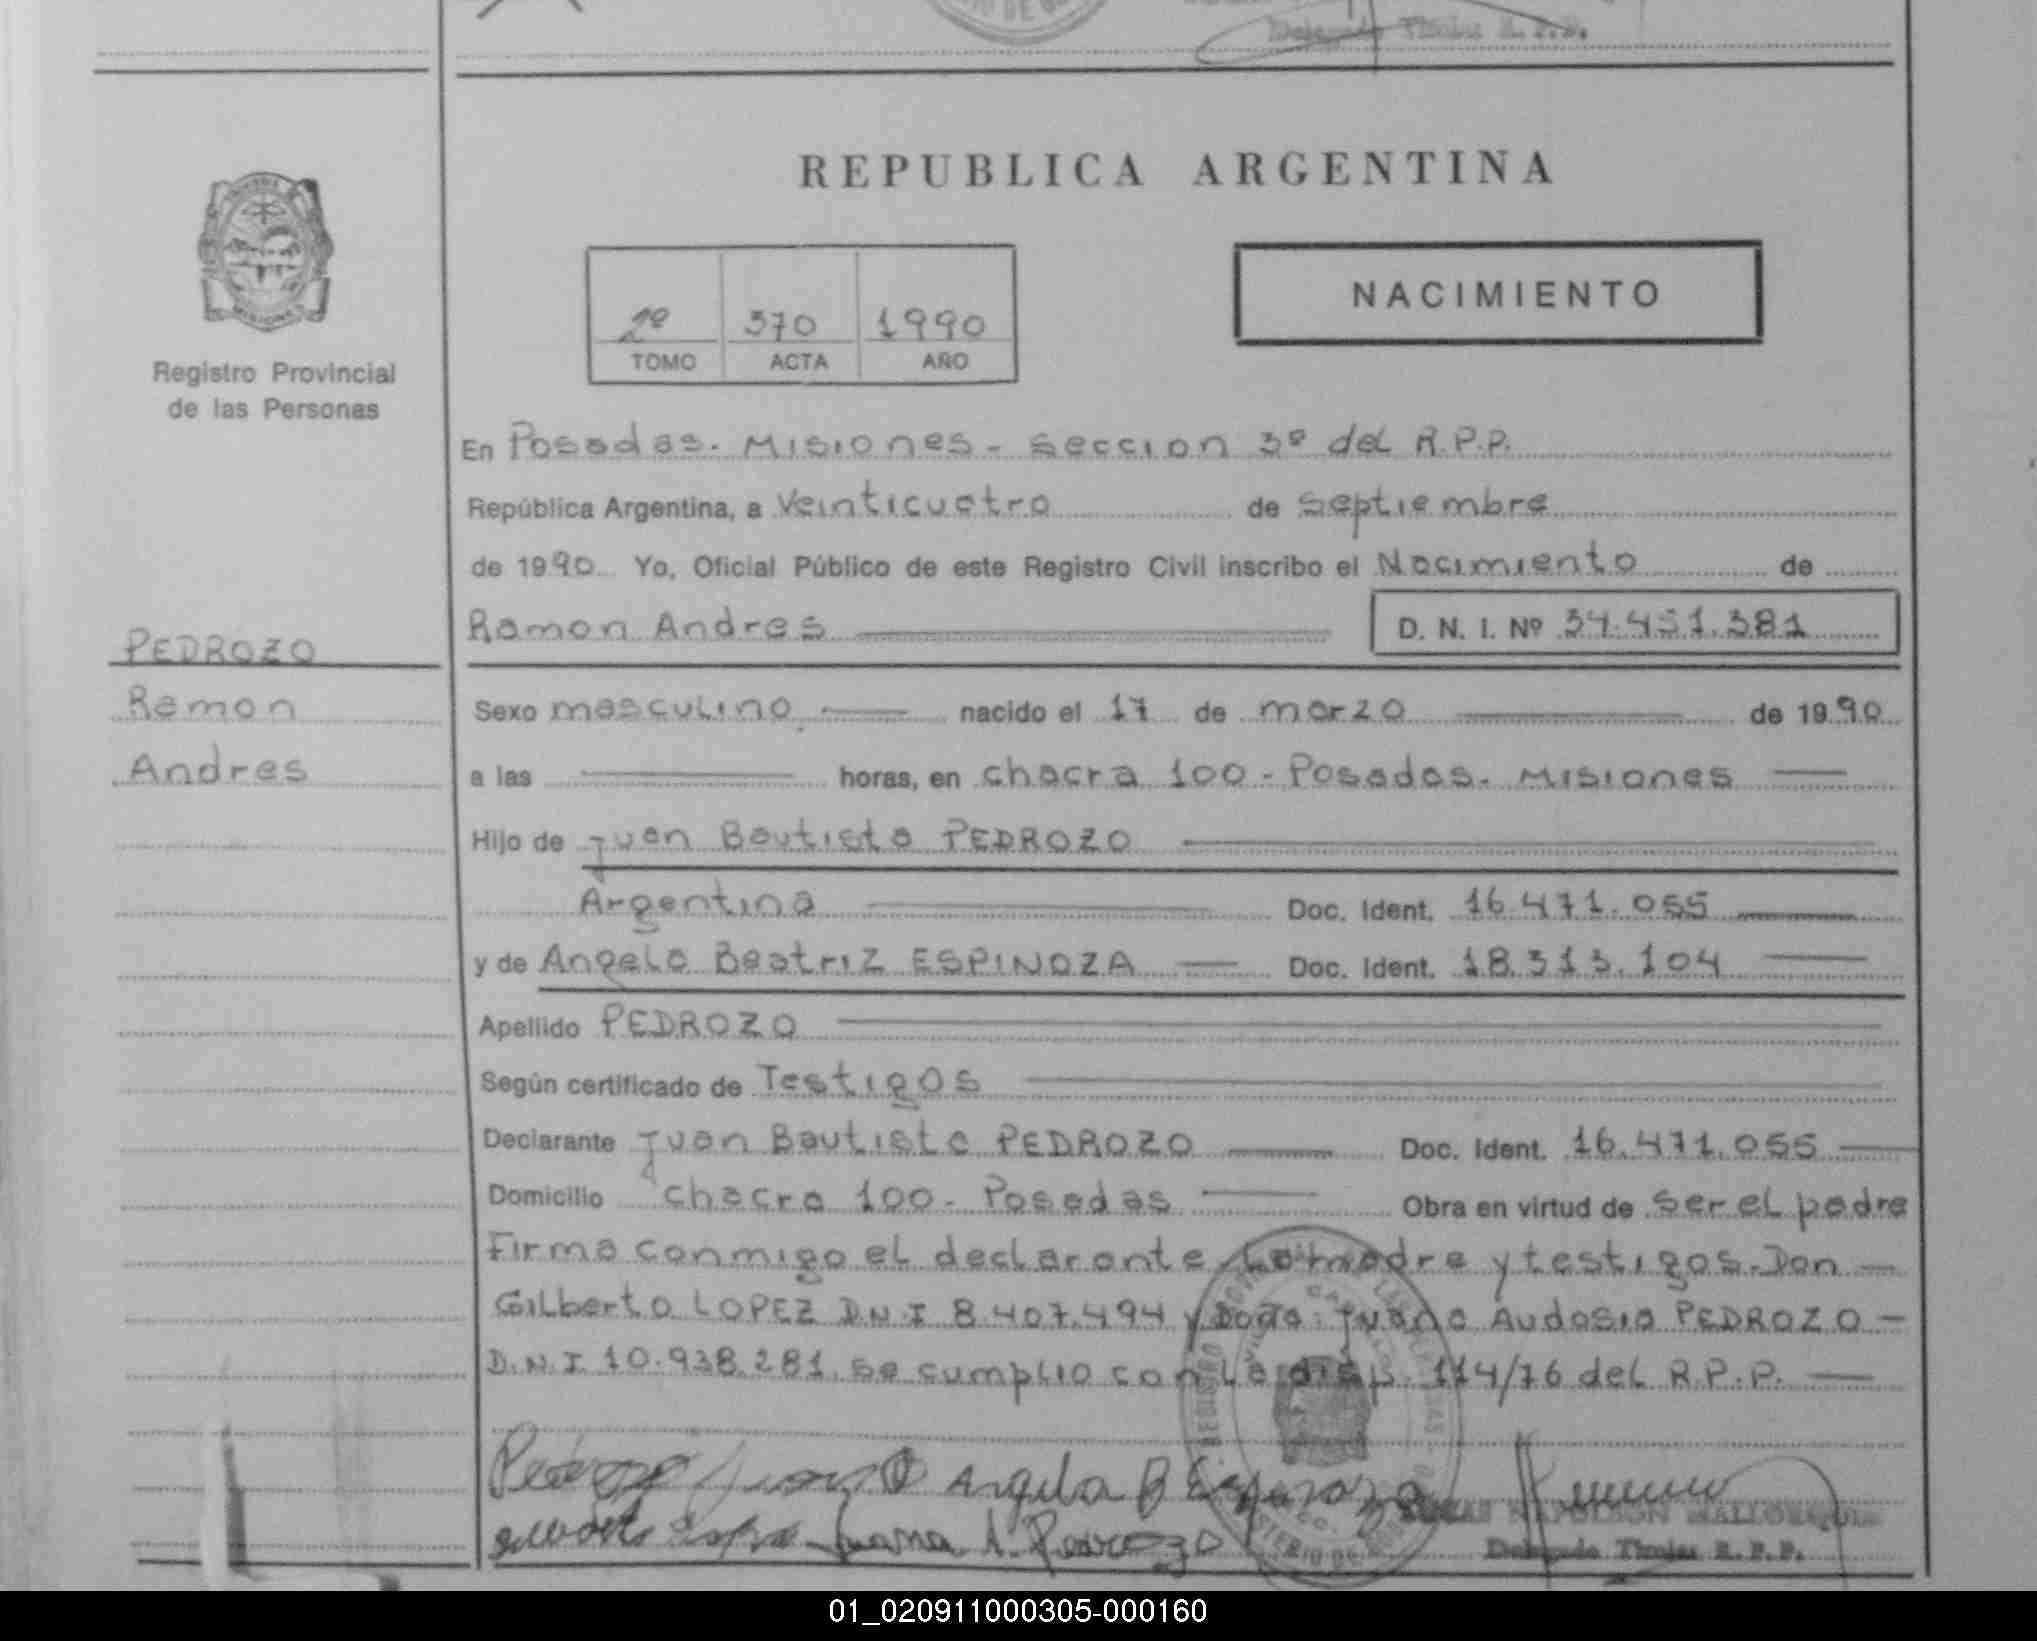 Delegado Titular R. P. P.
REPUBLICA ARGENTINA
NACIMIENTO
2º 370 1990
TOMO ACTA AÑO
Registro Provincial
de las Personas
En Posadas - Misiones - seccion 3º del R.P.P.
República Argentina, a Veinticuatro de septiembre
de 1990 Yo, Oficial Público de este Registro Civil inscribo el Nacimiento de
Ramon Andres D. N. I. Nº 34.451.381
PEDROZO
Ramon
Andres
Sexo masculino nacido el 17 de marzo de 1990
a las horas, en chacra 100 - Posadas - Misiones
Hijo de Juan Bautista PEDROZO
Argentina Doc. Ident. 16.471.055
y de Angela Beatriz ESPINOZA Doc. Ident. 18.313.104
Apellido PEDROZO
Según certificado de Testigos
Declarante Juan Bautista PEDROZO Doc. Ident. 16.471.055
Domicilio chacra 100 - Posadas Obra en virtud de ser el padre
Firma conmigo el declarante, la madre y testigos. Don
Gilberto LOPEZ D.N.I 8.407.494 y Doña: Juana Audosia PEDROZO
D.N.I 10.938.281. se cumplio con la disp. 114/76 del R.P.P.
Pedrozo Juan B Angela B Espinoza
Juana A. Pedrozo
NAPOLEON
Delegado Titular R. P. P.
01_020911000305-000160